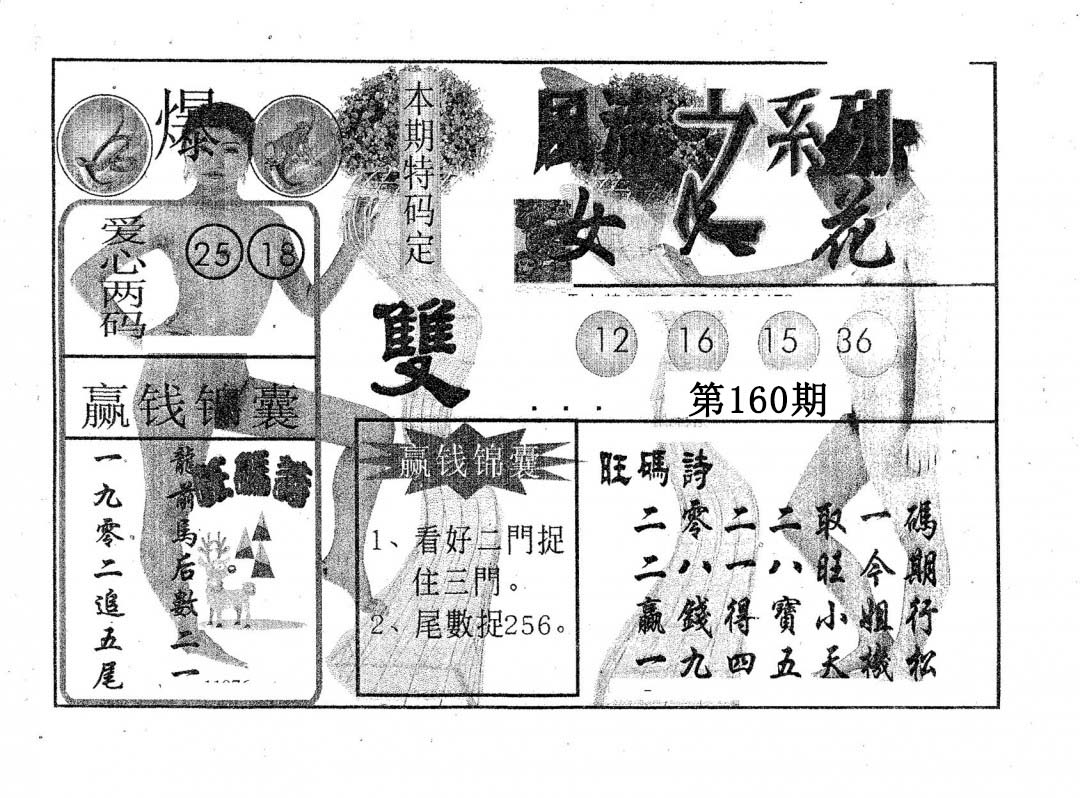 爆
本期特码定
雙
爱心两码
25 18
赢钱锦囊
龍前馬后數二一
一九零二追五尾
系列
女人花
12 16 15 36
第160期
赢钱锦囊
1、看好二門捉
住三門。
2、尾數捉256。
旺碼詩
二零二二取一碼
二八一八旺今期
贏錢得寶小姐行
一九四五天機松